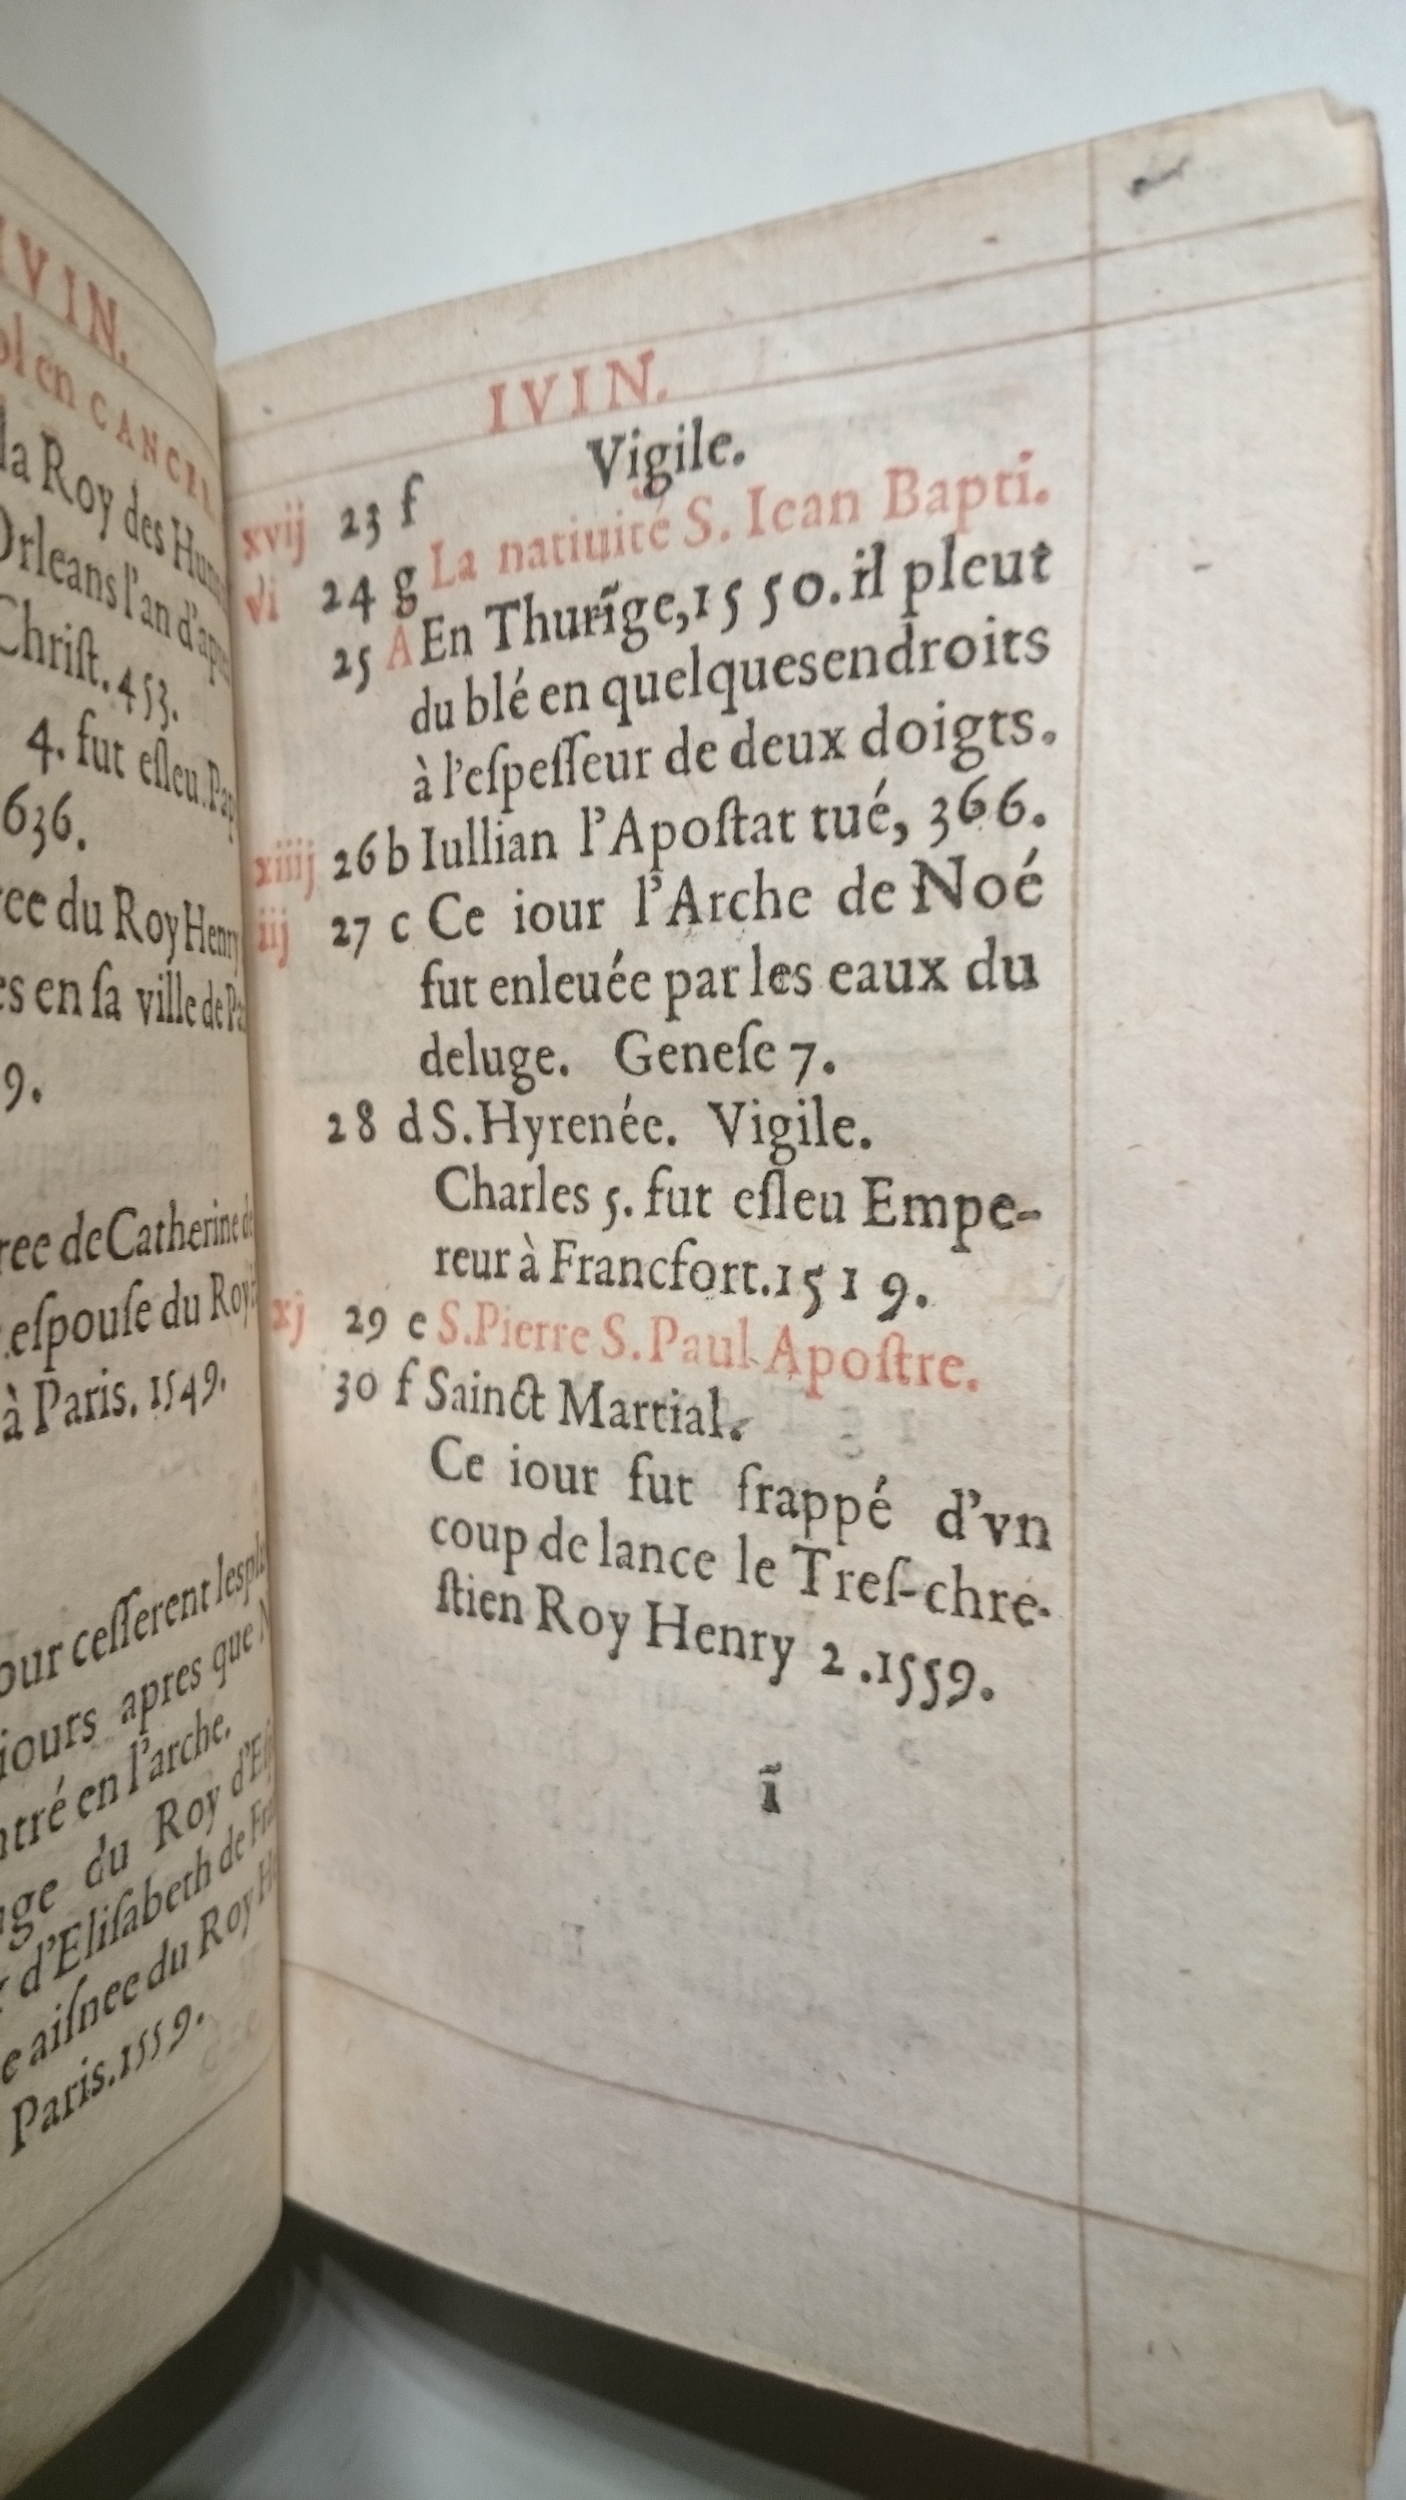 IVIN.
ol en CANCER
la Roy des Hun
Orleans l'an d'apr
Chriſt. 453.
4. fut eſleu Pap
636.
ree du Roy Henry
es en ſa ville de Pa
9.
ree de Catherine de
eſpouſe du Roy
à Paris. 1549.
our ceſſerent les plu
iours apres que N
ntré en l'arche.
age du Roy d'Eſ
d'Eliſabeth de Fra
e aiſnee du Roy He
Paris. 1559.
IVIN.
xvij 23 f Vigile.
vi 24 g La natiuité S. Iean Bapti.
25 A En Thurĩge, 1550. il pleut
du blé en quelques endroits
à l'eſpeſſeur de deux doigts.
xiiij 26 b Iullian l'Apoſtat tué, 366.
iij 27 c Ce iour l'Arche de Noé
fut enleuée par les eaux du
deluge. Geneſe 7.
28 d S. Hyrenée. Vigile.
Charles 5. fut eſleu Empe-
reur à Francfort. 1519.
xj 29 e S. Pierre S. Paul Apoſtre.
30 f Sainct Martial.
Ce iour fut frappé d'vn
coup de lance le Treſ-chre-
ſtien Roy Henry 2. 1559.
ĩ